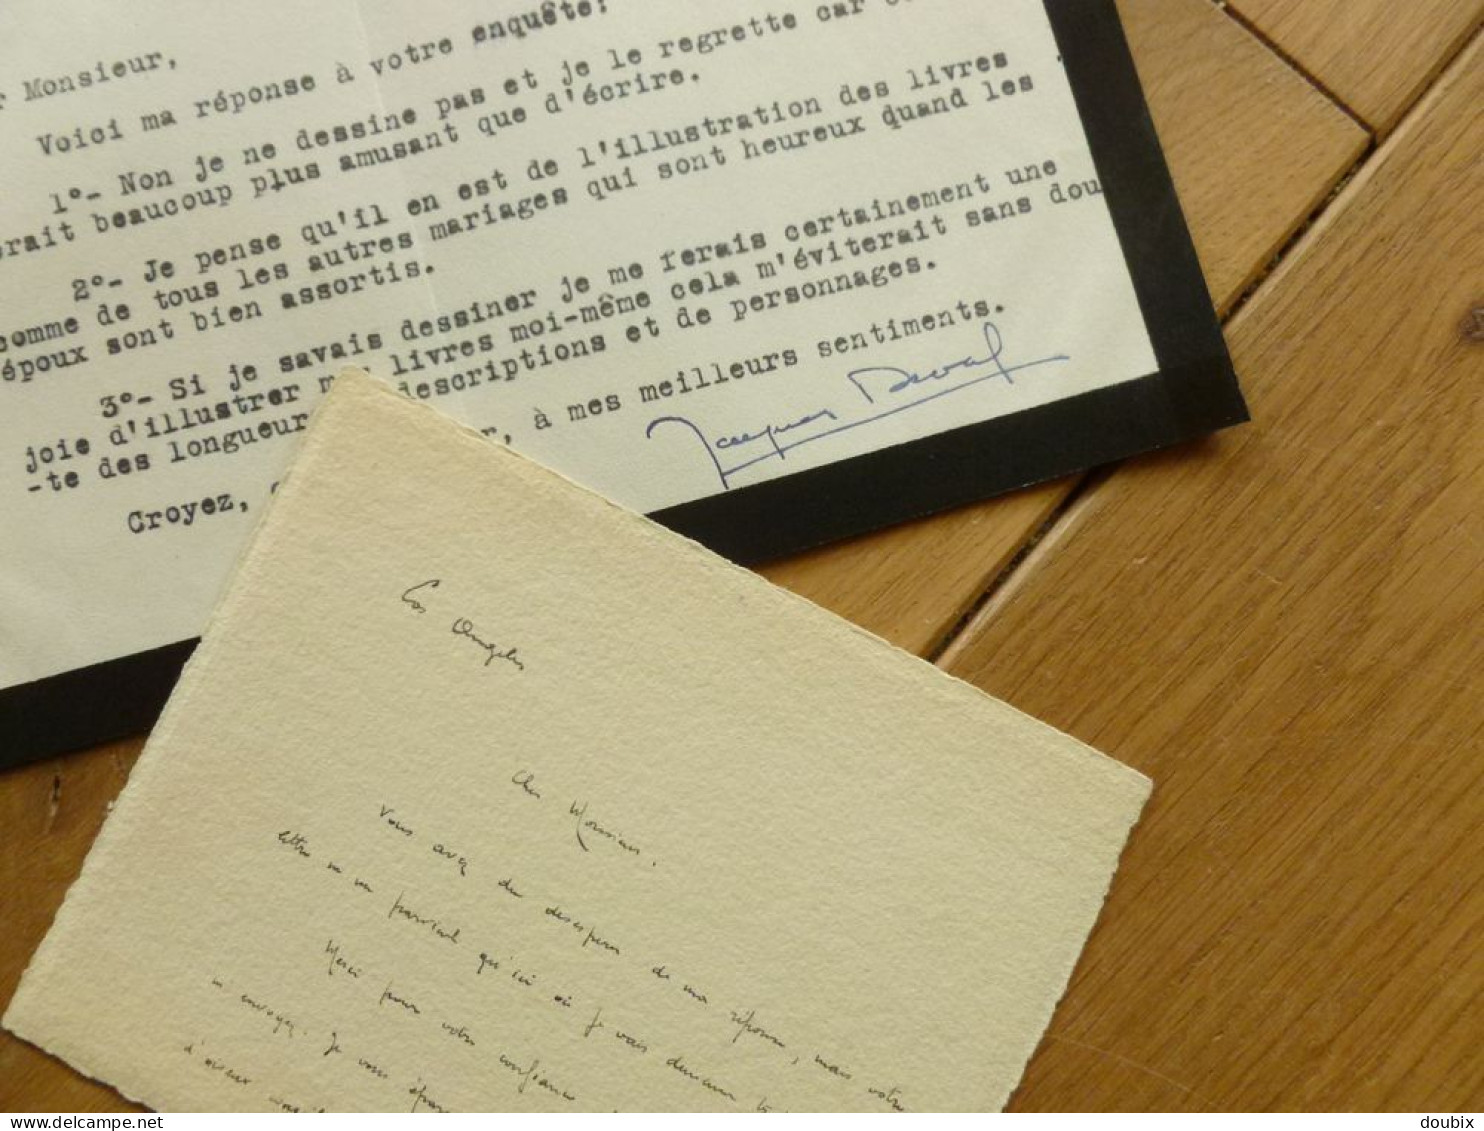 Monsieur,
Voici ma réponse à votre enquête:
1°- Non je ne dessine pas et je le regrette car
beaucoup plus amusant que d'écrire.
2°- Je pense qu'il en est de l'illustration des livres
comme de tous les autres mariages qui sont heureux quand les
époux sont bien assortis.
3°- Si je savais dessiner je me ferais certainement une
joie d'illustrer livres moi-même cela m'éviterait sans dou
-te des longueur descriptions et de personnages.
Croyez, à mes meilleurs sentiments.
Jacques Deval
Los Angeles
Cher Monsieur.
Vous avez du desesperer de ma réponse, mais votre
lettre ne me parvient qu'ici où je vais demeurer
Merci pour votre confiance
envoyez. Je vous
d'avoir
delcampe.net
doubix